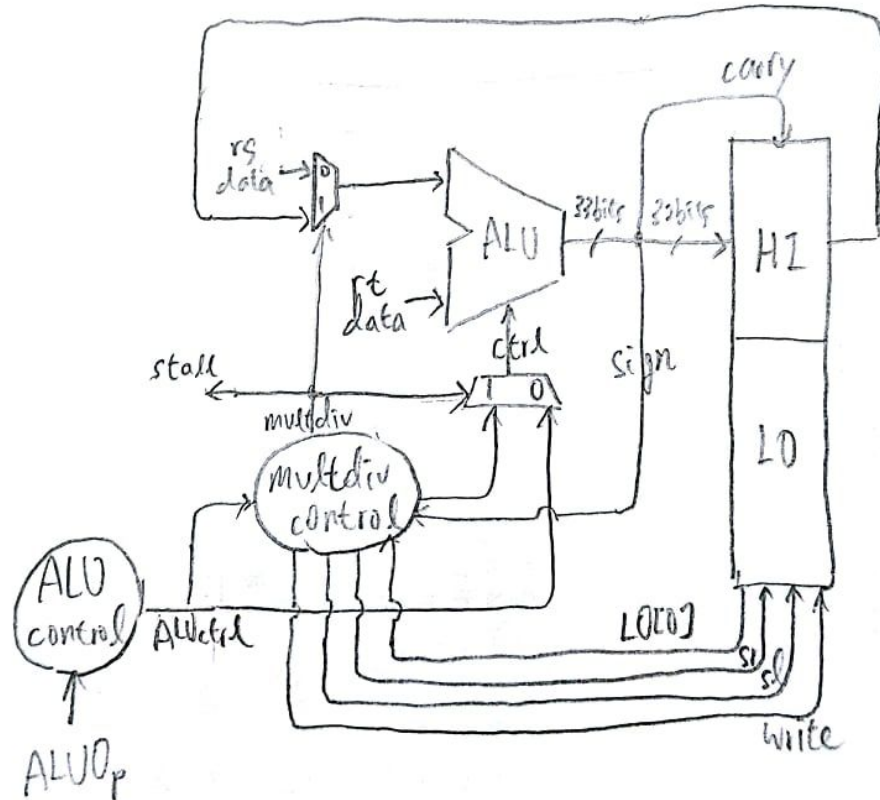 carry
rs
data
0
1
ALU
33bits
32bits
HI
rt
data
ctrl
sign
stall
1 0
multdiv
LO
multdiv
control
ALU
control
ALUctrl
LO[0]
sr
sl
write
ALUOp